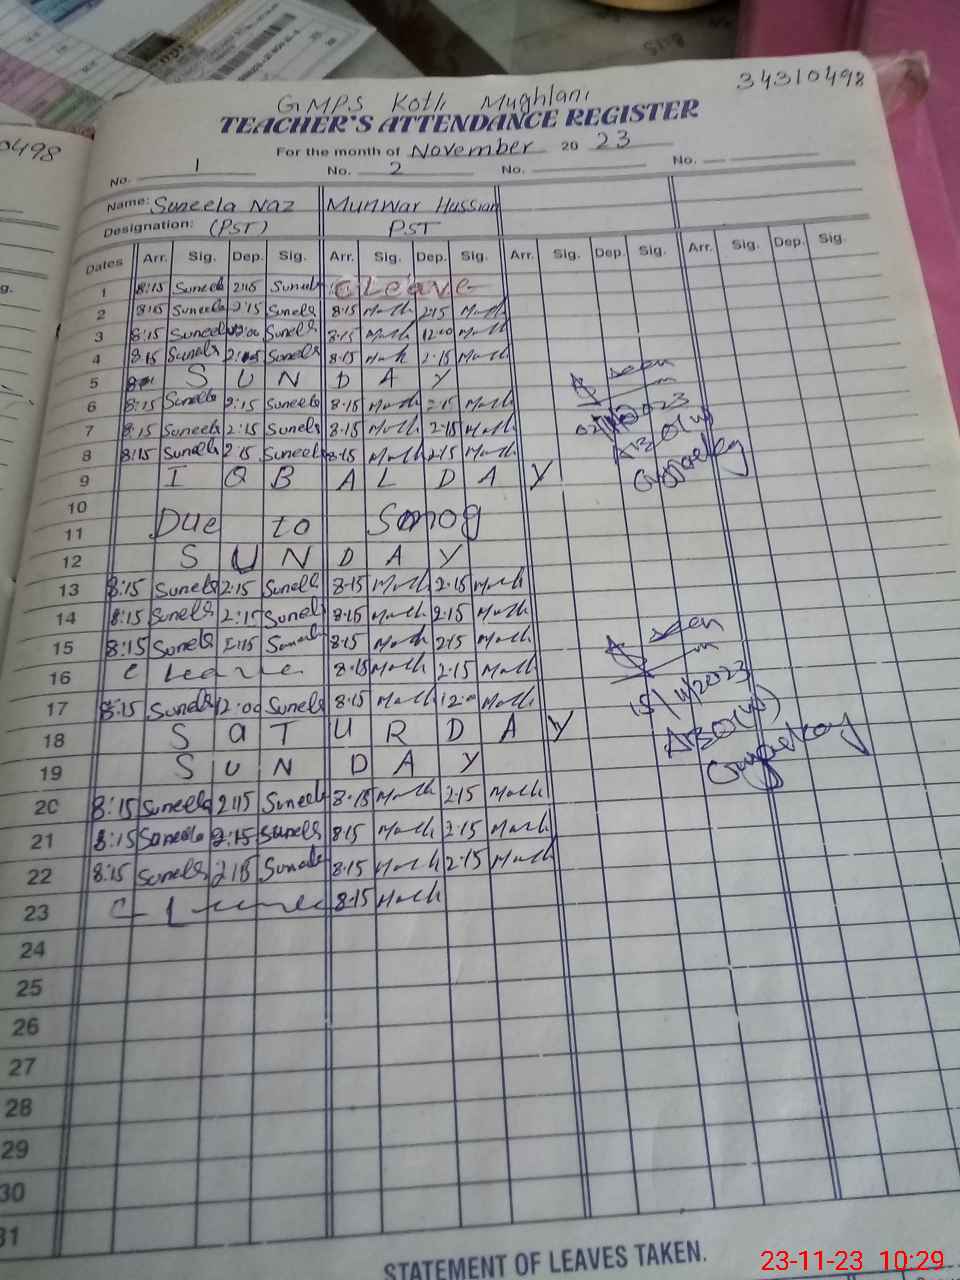 34310498
0498
GMPS Kotli Mughlani
TEACHER'S ATTENDANCE REGISTER
For the month of November 2023
No. 1 No. 2 No. No.
Name: Suneela Naz Munwar Hussian
Designation: (PST) PST
Dates Arr. Sig. Dep. Sig. Arr. Sig. Dep. Sig. Arr. Sig. Dep. Sig. Arr. Sig. Dep. Sig.
1 8:15 Suneela 2:15 Suneela C Leave
2 8:15 Suneela 2:15 Suneela 8-15 2-15
3 8:15 Suneela 12:00 Suneela 8-15 12-00
4 8:15 Suneela 2:15 Suneela 8-15 2-15
5 SUNDAY
6 8:15 Suneela 2:15 Suneela 8-15 2-15
7 8:15 Suneela 2:15 Suneela 8-15 2-15
8 8:15 Suneela 2:15 Suneela 8-15 2-15
9 IQBAL DAY
10
11 Due to Smog
12 SUNDAY
13 8:15 Suneela 2:15 Suneela 8-15 2-15
14 8:15 Suneela 2:15 Suneela 8-15 2-15
15 8:15 Suneela 2:15 Suneela 8-15 2-15
16 C Leave 8-15 2-15
17 8:15 Suneela 12:00 Suneela 8-15 12-00
15/11/2023
18 SATURDAY
19 SUNDAY
20 8:15 Suneela 2:15 Suneela 8-15 2-15
21 8:15 Suneela 2:15 Suneela 8-15 2-15
22 8:15 Suneela 2:15 Suneela 8-15 2-15
23 C Leave 8-15
24
25
26
27
28
29
30
31
STATEMENT OF LEAVES TAKEN.
23-11-23 10:29